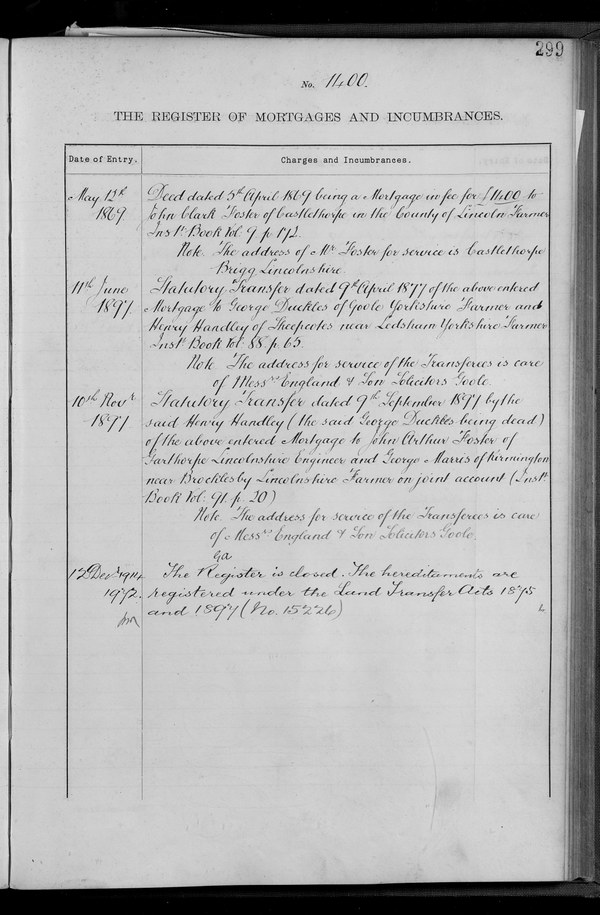 299
No. 1400.
THE REGISTER OF MORTGAGES AND INCUMBRANCES.
Date of Entry. Charges and Incumbrances.
May 12th Deed dated 5th April 1869 being a Mortgage in fee for £1400 to
1869 John Clark Foster of Castlethorpe in the County of Lincoln Farmer
Inst. Book Vol. 9 p. 172.
Note. The address of Mr. Foster for service is Castlethorpe
Brigg Lincolnshire.
11th June Statutory Transfer dated 9th April 1877 of the above entered
1897 Mortgage to George Duckles of Goole Yorkshire Farmer and
Henry Handley of Sheepcotes near Ledsham Yorkshire Farmer
Inst. Book Vol. 88 p. 65.
Note The address for service of the Transferees is care
of Messrs England & Son Solicitors Goole.
10th Novr. Statutory Transfer dated 9th September 1897 by the
1897 said Henry Handley (the said George Duckles being dead)
of the above entered Mortgage to John Arthur Foster of
Garthorpe Lincolnshire Engineer and George Marris of Kirmington
near Brocklesby Lincolnshire Farmer on joint account (Inst.
Book Vol: 91 p. 20)
Note. The address for service of the Transferees is care
of Messrs England & Son Solicitors Goole.
The Register is closed. The hereditaments are
1972. registered under the Land Transfer Acts 1875
and 1897 (No. 15226)